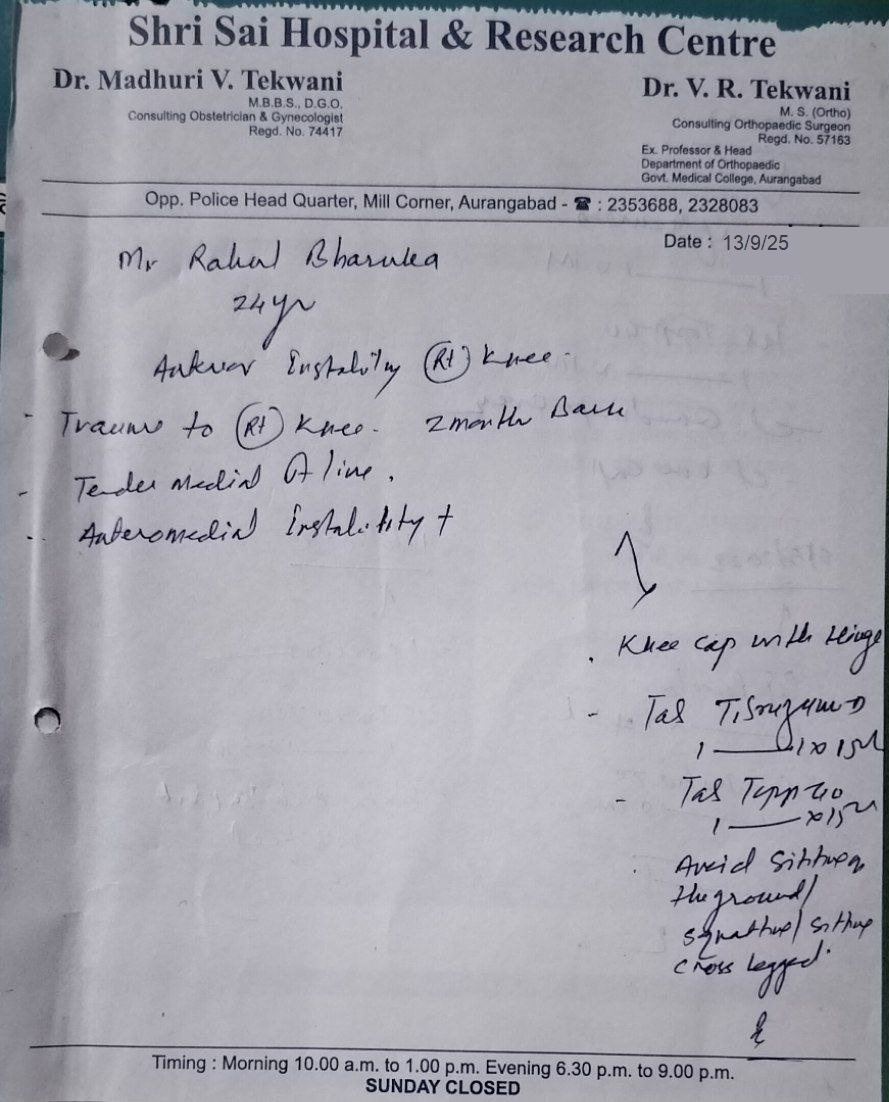 Shri Sai Hospital & Research Centre
Dr. Madhuri V. Tekwani
M.B.B.S., D.G.O.
Consulting Obstetrician & Gynecologist
Regd. No. 74417
Dr. V. R. Tekwani
M. S. (Ortho)
Consulting Orthopaedic Surgeon
Regd. No. 57163
Ex. Professor & Head
Department of Orthopaedic
Govt. Medical College, Aurangabad
Opp. Police Head Quarter, Mill Corner, Aurangabad - ☎ : 2353688, 2328083
Date : 13/9/25
Mr Rahul Bharuka
24 yr
Instability (Rt) Knee.
- Trauma to (Rt) Knee. 2 month Back
- Tender medial line.
- Anteromedial Instability +
. Knee cap with Hinge
- Tab
1 — 1 x 15
- Tab
1 — x 15
. Avoid sitting on
the ground/
squatting/ sitting
cross legged.
Timing : Morning 10.00 a.m. to 1.00 p.m. Evening 6.30 p.m. to 9.00 p.m.
SUNDAY CLOSED